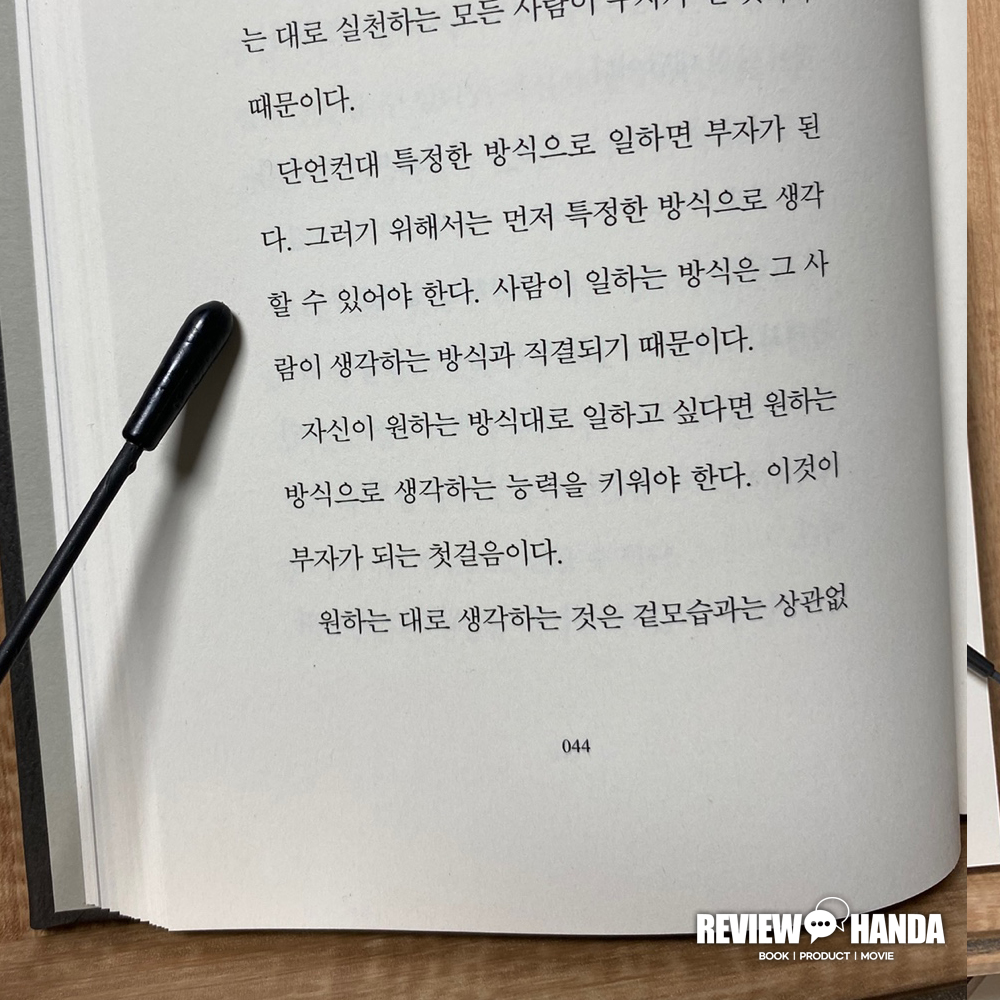 는 대로 실천하는 모든 사람이 부자가
때문이다.
단언컨대 특정한 방식으로 일하면 부자가 된
다. 그러기 위해서는 먼저 특정한 방식으로 생각
할 수 있어야 한다. 사람이 일하는 방식은 그 사
람이 생각하는 방식과 직결되기 때문이다.
자신이 원하는 방식대로 일하고 싶다면 원하는
방식으로 생각하는 능력을 키워야 한다. 이것이
부자가 되는 첫걸음이다.
원하는 대로 생각하는 것은 겉모습과는 상관없
044
REVIEW HANDA
BOOK | PRODUCT | MOVIE